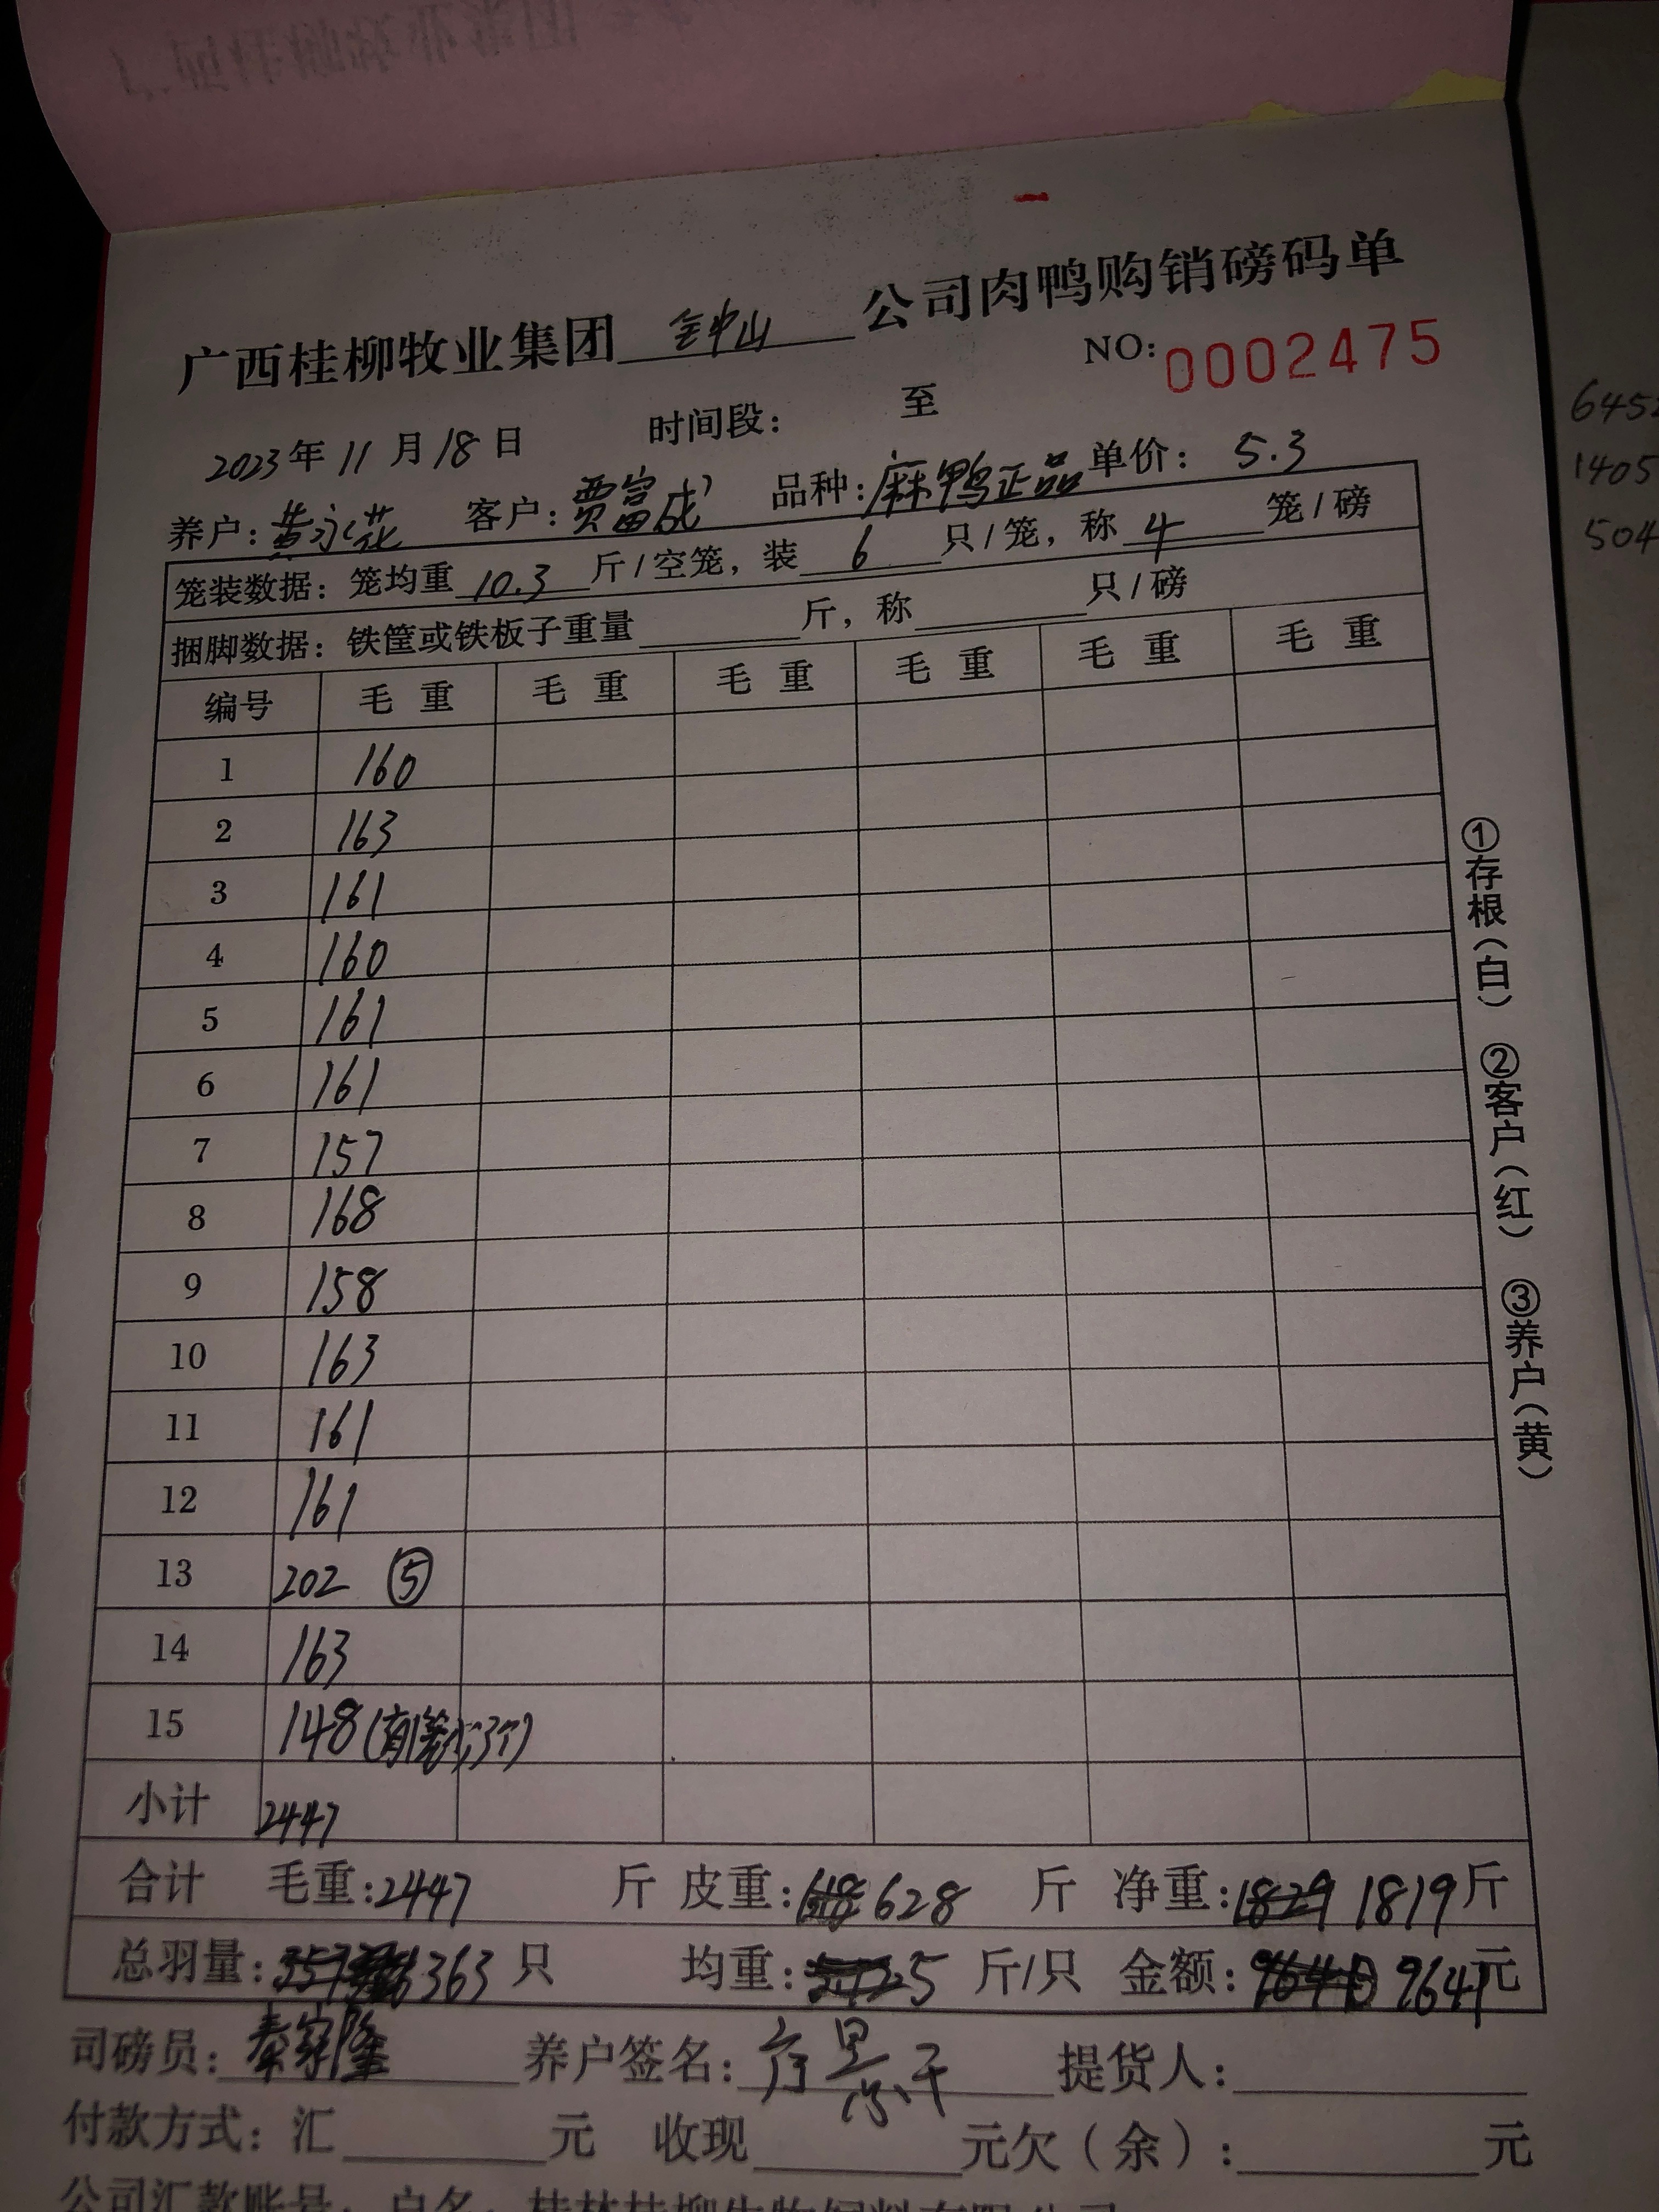 广西桂柳牧业集团 钟山 公司肉鸭购销磅码单
NO: 0002475
2023年11月18日 时间段： 至
养户：黄永花 客户：贾富成 品种：麻鸭正品 单价：5.3
笼装数据：笼均重 10.3 斤/空笼，装 6 只/笼，称 4 笼/磅
捆脚数据：铁筐或铁板子重量 斤，称 只/磅
编号 毛重 毛重 毛重 毛重 毛重 毛重
1 160
2 163
3 161
4 160
5 161
6 161
7 157
8 168
9 158
10 163
11 161
12 161
13 202 ⑤
14 163
15 148
小计 2447
合计 毛重：2447 斤 皮重：628 斤 净重：1829 1819斤
总羽量：363 只 均重：5 斤/只 金额：9641元
司磅员：秦家隆 养户签名： 提货人：
付款方式：汇 元 收现 元欠（余）： 元
公司汇款账号：户名：桂林桂柳生物饲料有限公司
①存根（白） ②客户（红） ③养户（黄）
1405
504